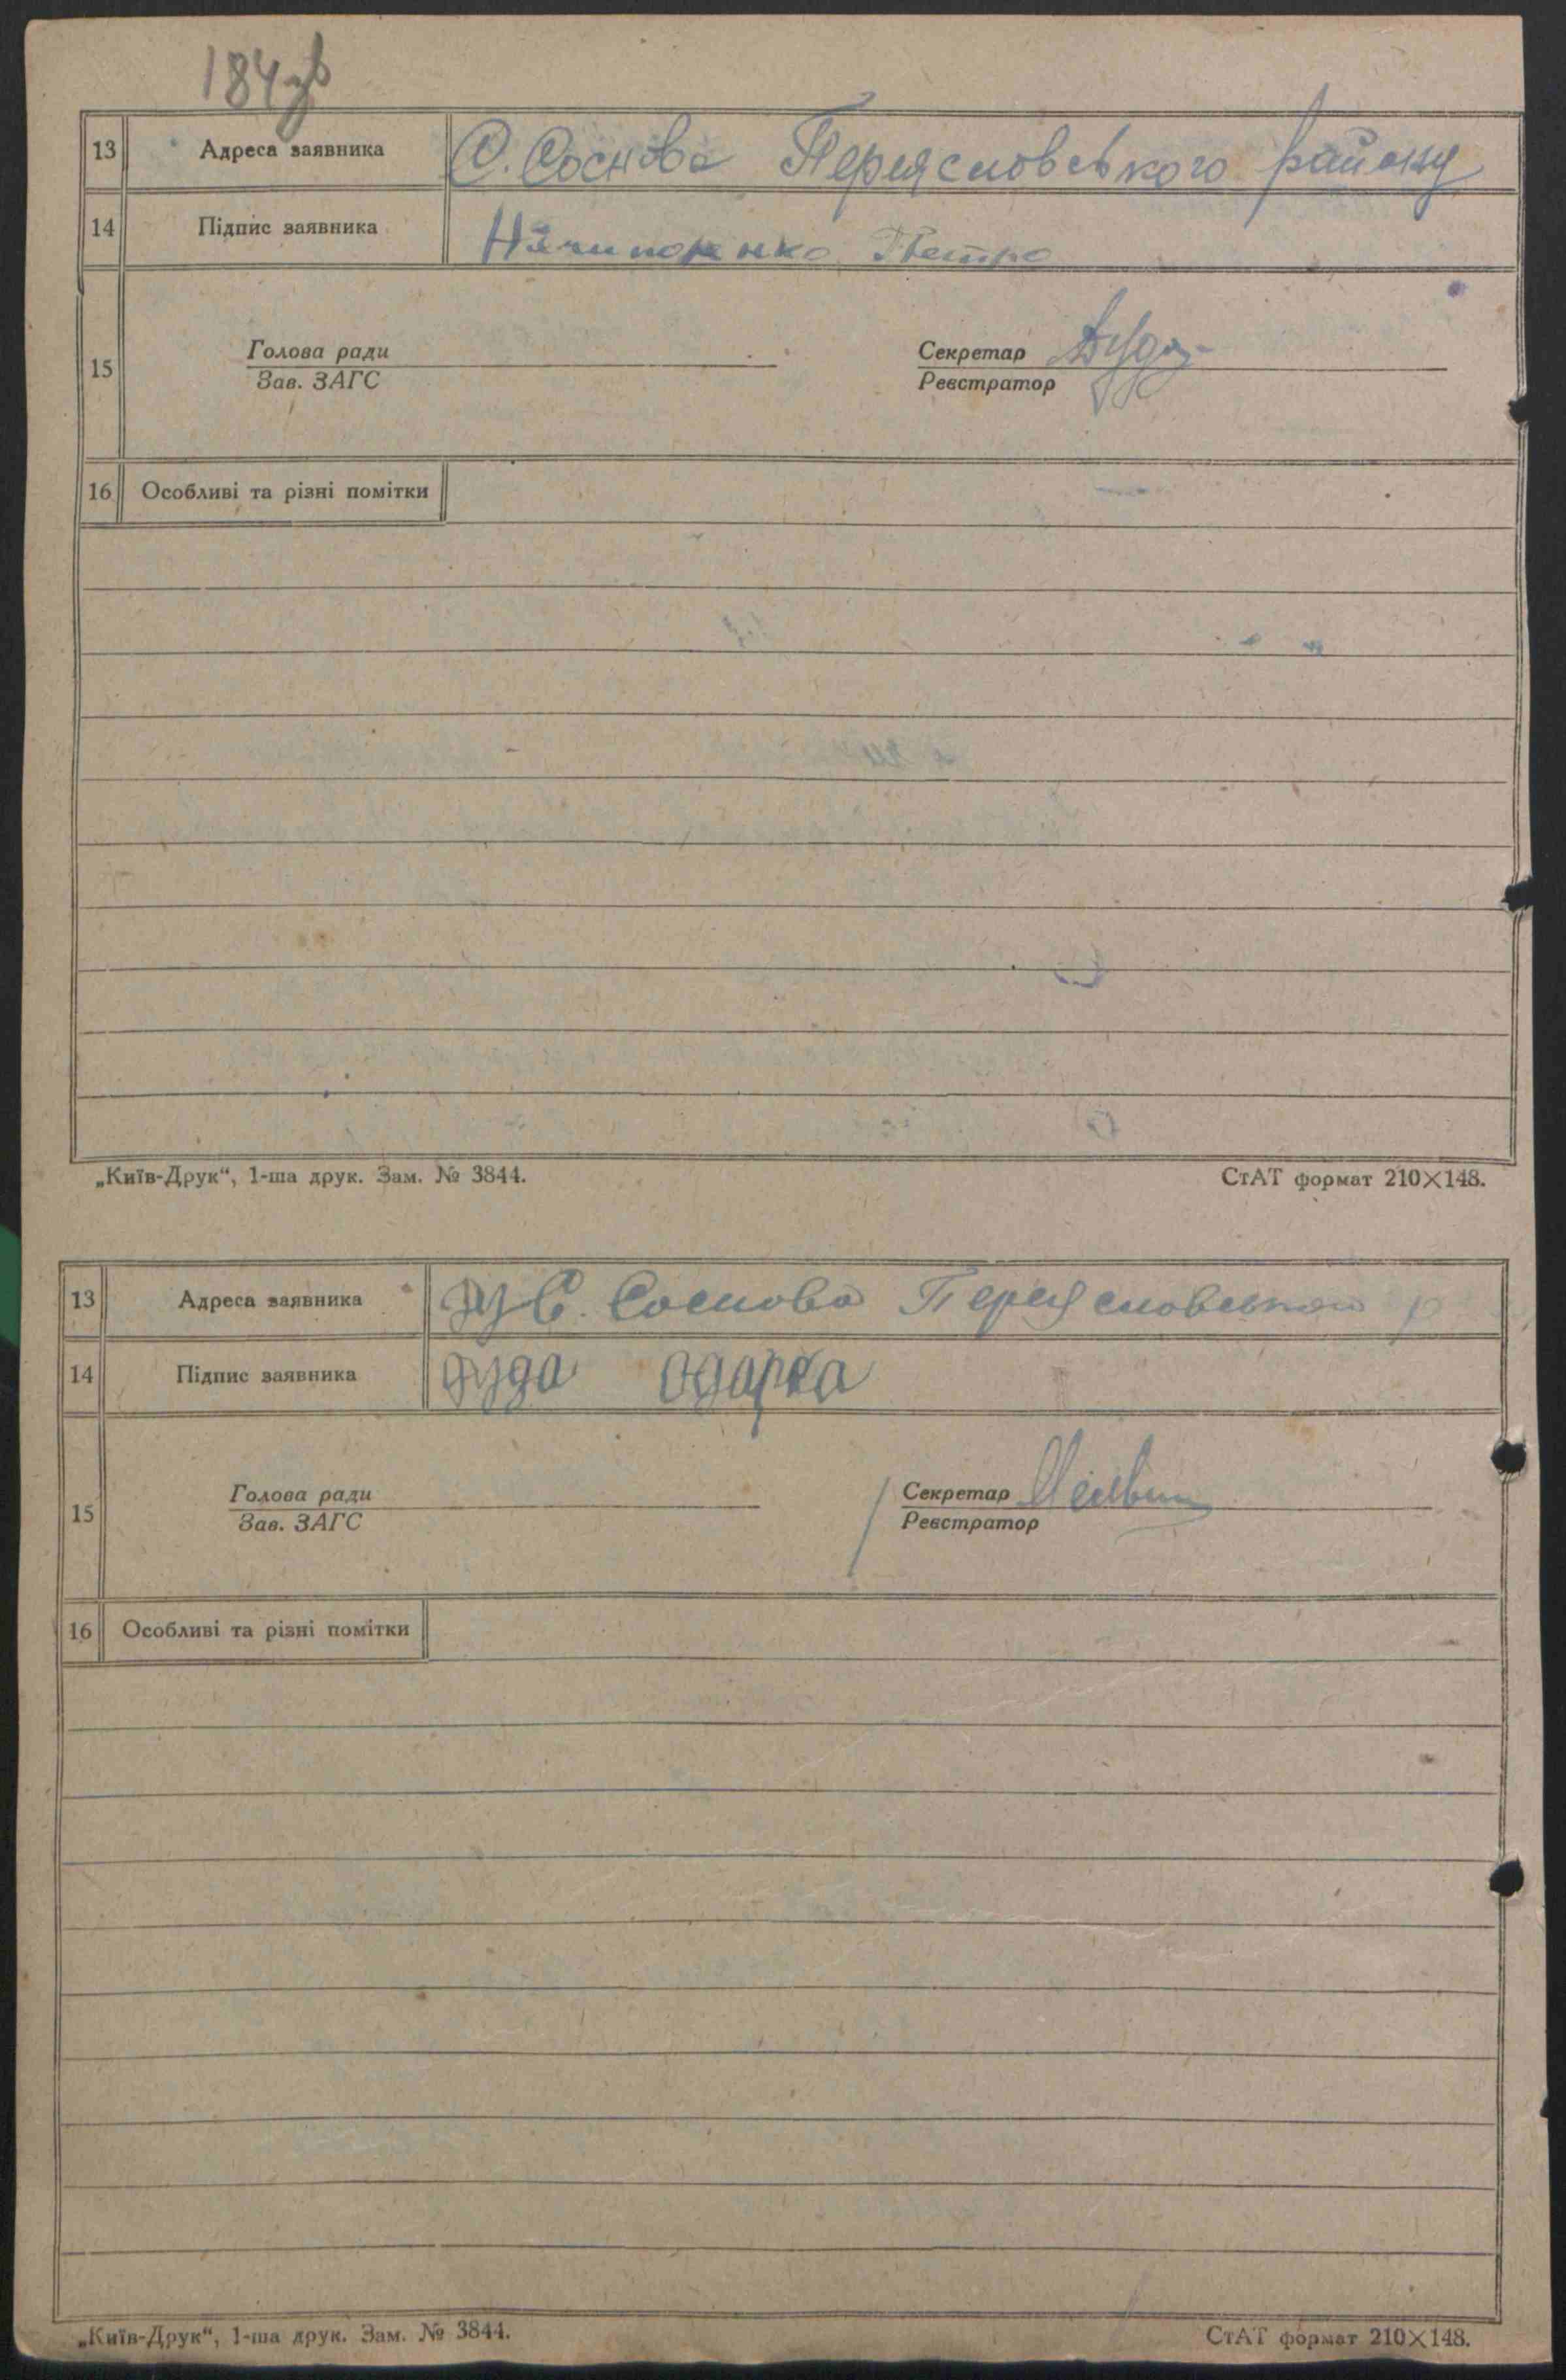 184зв
13 Адреса заявника С. Соснова Переясловського району
14 Підпис заявника Ничипоренко Петро
15 Голова ради Секретар
Зав. ЗАГС Реєстратор
16 Особливі та різні помітки
„Київ-Друк“, 1-ша друк. Зам. № 3844. СтАТ формат 210×148.
13 Адреса заявника С. Соснова Переясловського р
14 Підпис заявника Дуда Одарка
15 Голова ради Секретар
Зав. ЗАГС Реєстратор
16 Особливі та різні помітки
„Київ-Друк“, 1-ша друк. Зам. № 3844. СтАТ формат 210×148.